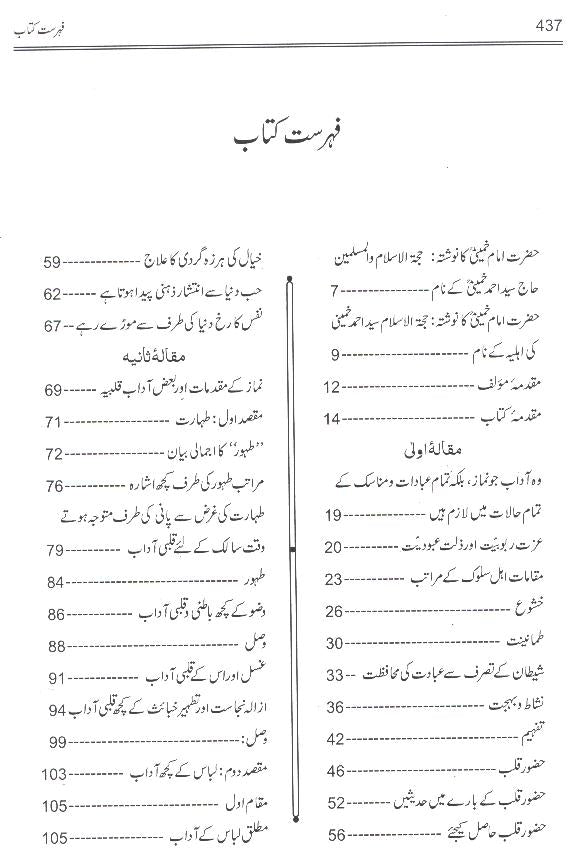 437
فہرست کتاب
فہرست کتاب
حضرت امام خمینیؒ کا نوشتہ: حجۃ الاسلام والمسلمین
حاج سید احمد خمینیؒ کے نام ---------------- 7
حضرت امام خمینیؒ کا نوشتہ: حجۃ الاسلام سید احمد خمینی
کی اہلیہ کے نام ----------------------- 9
مقدمۂ مؤلف ------------------------ 12
مقدمۂ کتاب ------------------------ 14
مقالۂ اولیٰ
وہ آداب جو نماز، بلکہ تمام عبادات و مناسک کے
تمام حالات میں لازم ہیں --------------- 19
عزت ربوبیّت اور ذلت عبودیّت ---------- 20
مقامات اہل سلوک کے مراتب ---------- 23
خشوع ---------------------------- 26
طمانینت --------------------------- 30
شیطان کے تصرف سے عبادت کی محافظت -- 33
نشاط و بہجت ------------------------ 36
تفہیم ------------------------------ 42
حضور قلب ------------------------- 46
حضور قلب کے بارے میں حدیثیں -------- 52
حضور قلب حاصل کیجئے ---------------- 56
خیال کی ہرزہ گردی کا علاج -------------- 59
حب دنیا سے انتشار ذہنی پیدا ہوتا ہے ------ 62
نفس کا رخ دنیا کی طرف سے موڑے رہے -- 67
مقالۂ ثانیه
نماز کے مقدمات اور بعض آداب قلبیہ ------ 69
مقصد اول: طہارت ------------------- 71
”طہور“ کا اجمالی بیان ----------------- 72
مراتب طہور کی طرف کچھ اشارہ ----------- 76
طہارت کی غرض سے پانی کی طرف متوجہ ہوتے
وقت سالک کے لئے قلبی آداب ---------- 79
طہور ------------------------------ 84
وضو کے کچھ باطنی و قلبی آداب ------------ 86
وصل ------------------------------ 88
غسل اور اس کے قلبی آداب ------------- 91
ازالہ نجاست اور تطہیر خبائث کے کچھ قلبی آداب 94
وصل: ----------------------------- 99
مقصد دوم: لباس کے کچھ آداب ---------- 103
مقام اول ------------------------- 105
مطلق لباس کے آداب --------------- 105